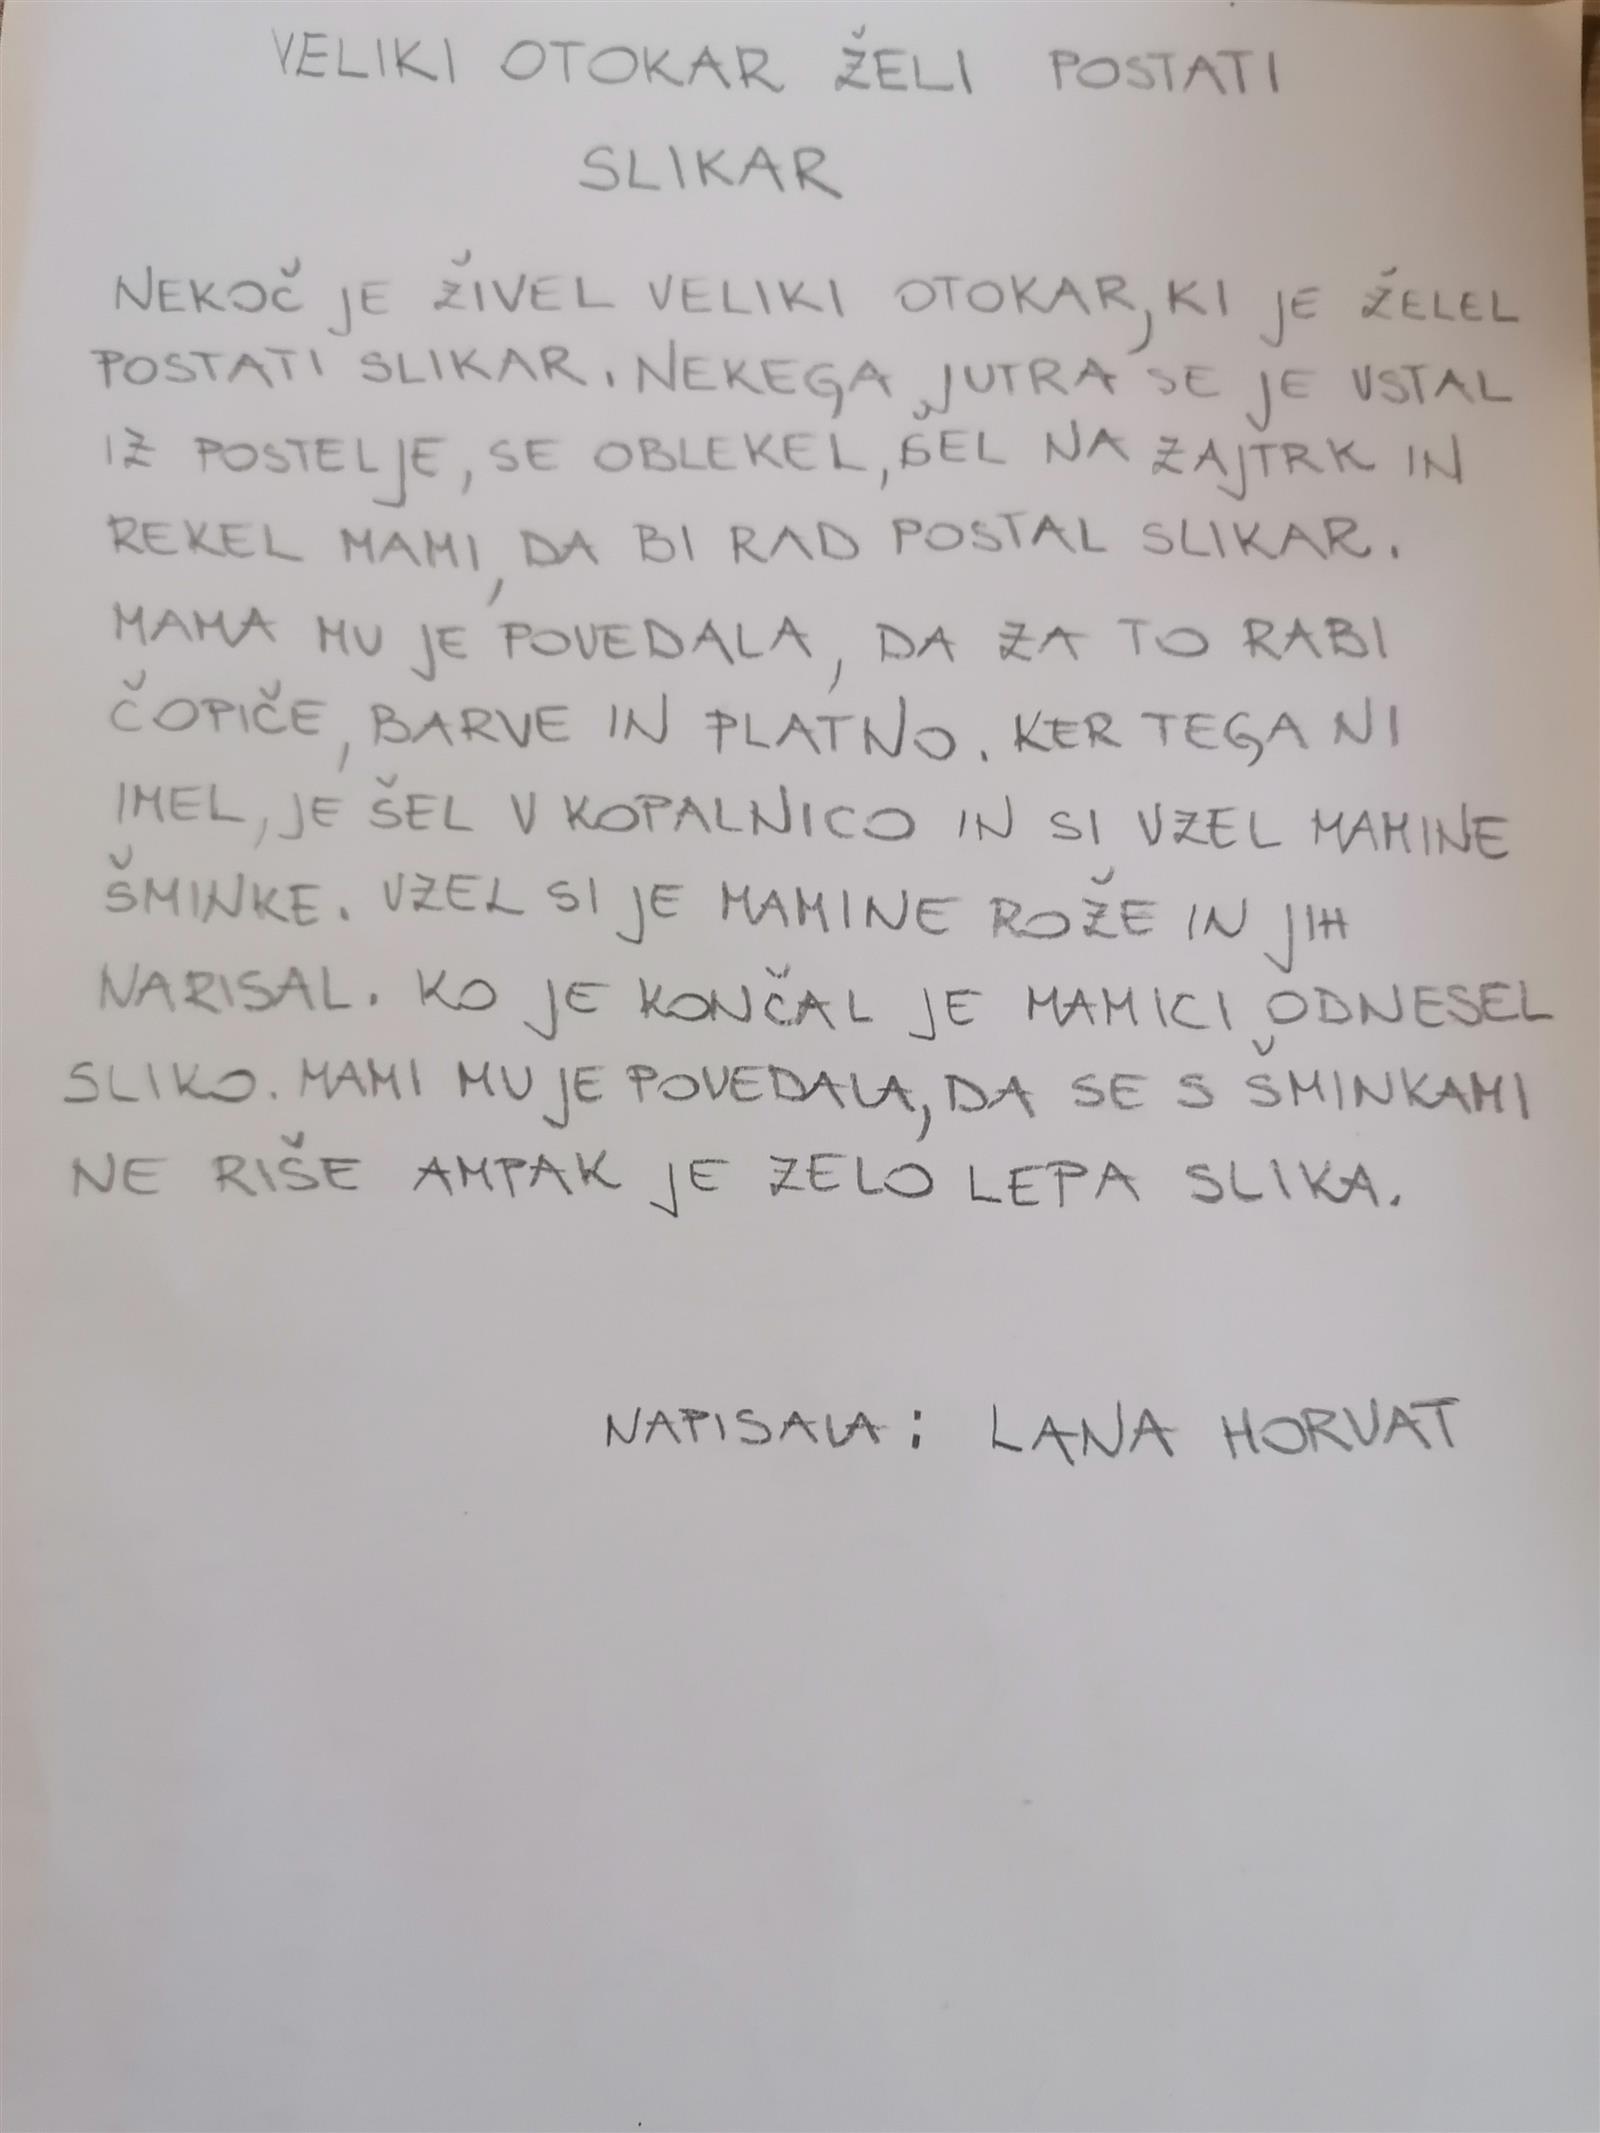 VELIKI OTOKAR ŽELI POSTATI
SLIKAR
NEKOČ JE ŽIVEL VELIKI OTOKAR, KI JE ŽELEL
POSTATI SLIKAR. NEKEGA JUTRA SE JE VSTAL
IZ POSTELJE, SE OBLEKEL, ŠEL NA ZAJTRK IN
REKEL MAMI, DA BI RAD POSTAL SLIKAR.
MAMA MU JE POVEDALA, DA ZA TO RABI
ČOPIČE, BARVE IN PLATNO. KER TEGA NI
IMEL, JE ŠEL V KOPALNICO IN SI VZEL MAMINE
ŠMINKE. VZEL SI JE MAMINE ROŽE IN JIH
NARISAL. KO JE KONČAL JE MAMICI ODNESEL
SLIKO. MAMI MU JE POVEDALA, DA SE S ŠMINKAMI
NE RIŠE AMPAK JE ZELO LEPA SLIKA.
NAPISALA: LANA HORVAT